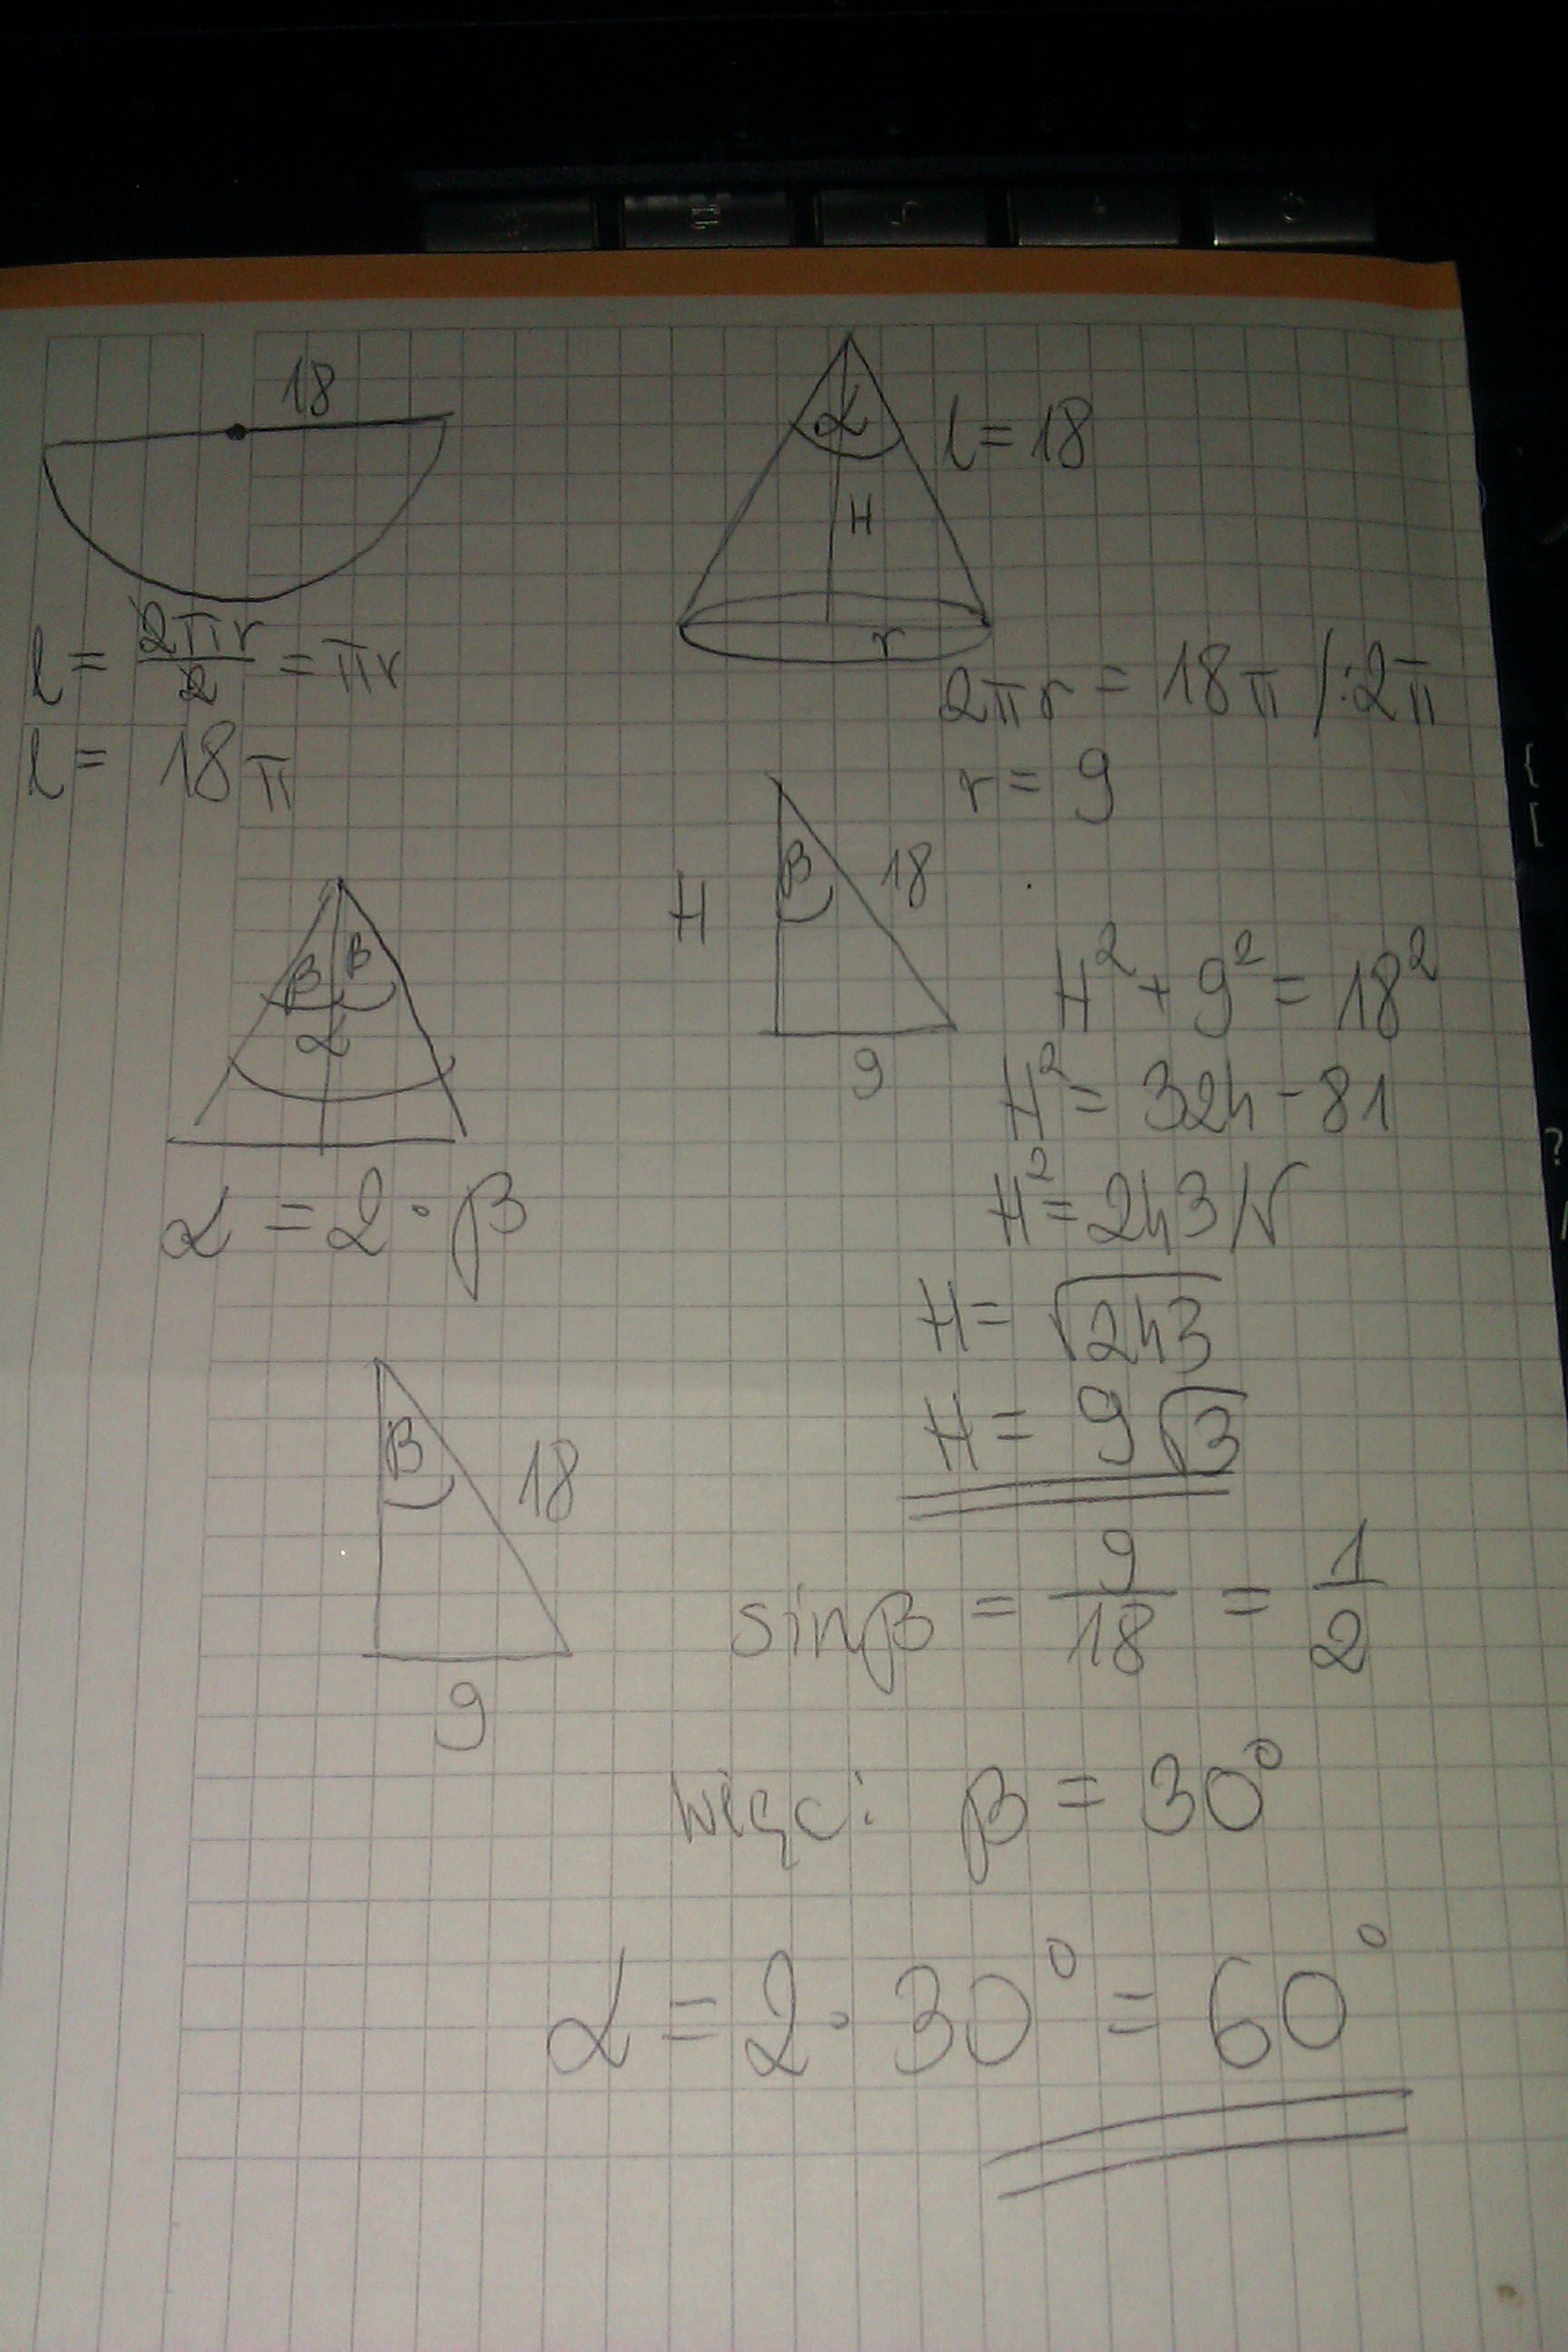 18
l = 2πr/2 = πr
l = 18π
α
l = 18
H
r
2πr = 18π /:2π
r = 9
β
18
H
9
H² + 9² = 18²
H² = 324 - 81
H² = 243 /√
H = √243
H = 9√3
β β
α
α = 2 · β
β
18
9
sinβ = 9/18 = 1/2
więc: β = 30°
α = 2 · 30° = 60°